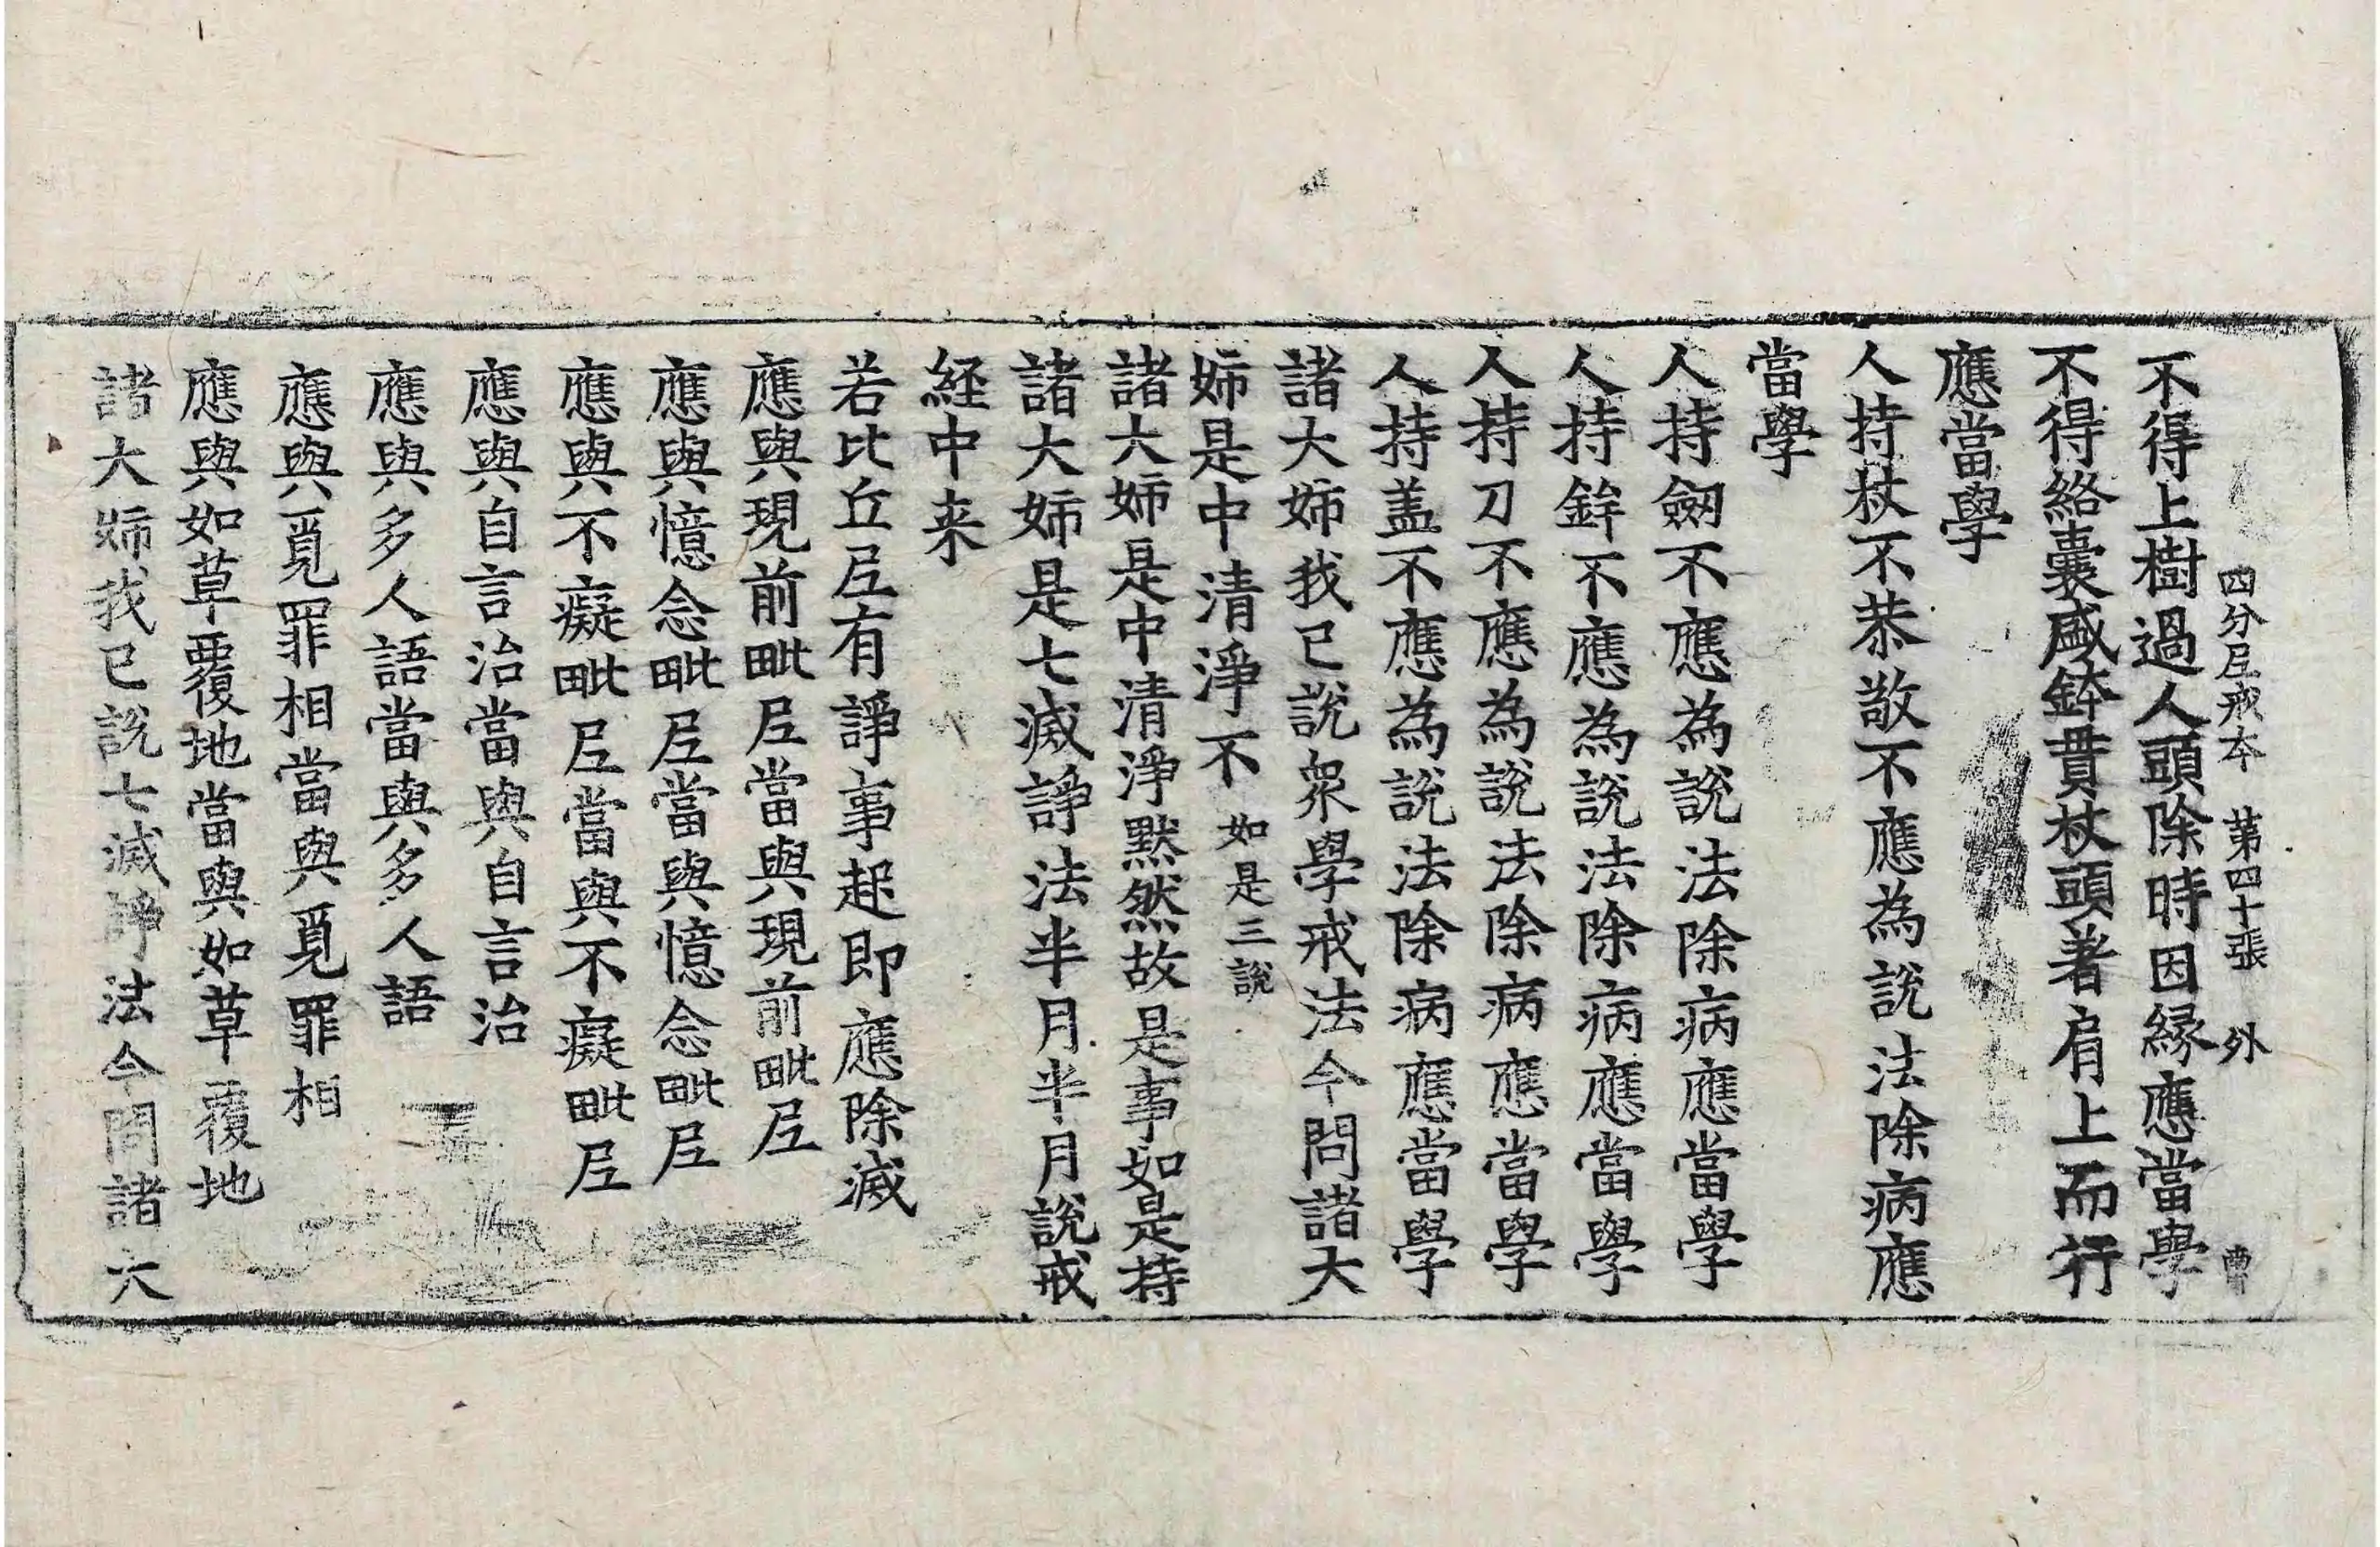 四分尼戒本 第四十張 外
不得上樹過人頭除時因緣應當學
不得絡囊盛鉢貫杖頭著肩上而行
應當學
人持杖不恭敬不應為說法除病應
當學
人持劒不應為說法除病應當學
人持鉾不應為說法除病應當學
人持刀不應為說法除病應當學
人持盖不應為說法除病應當學
諸大姉我已說衆學戒法今問諸大
姉是中清淨不 如是三說
諸大姉是中清淨默然故是事如是持
諸大姉是七滅諍法半月半月說戒
経中来
若比丘尼有諍事起即應除滅
應與現前毗尼當與現前毗尼
應與憶念毗尼當與憶念毗尼
應與不癡毗尼當與不癡毗尼
應與自言治當與自言治
應與多人語當與多人語
應與覓罪相當與覓罪相
應與如草覆地當與如草覆地
諸大姉我已說七滅諍法今問諸大